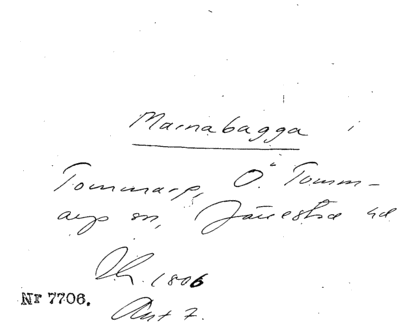 Marnabagga
Tommarp, Ö. Tomm-
arp sn, Järrestad hd
Lh. 1806
Nr 7706.
Akt 7.